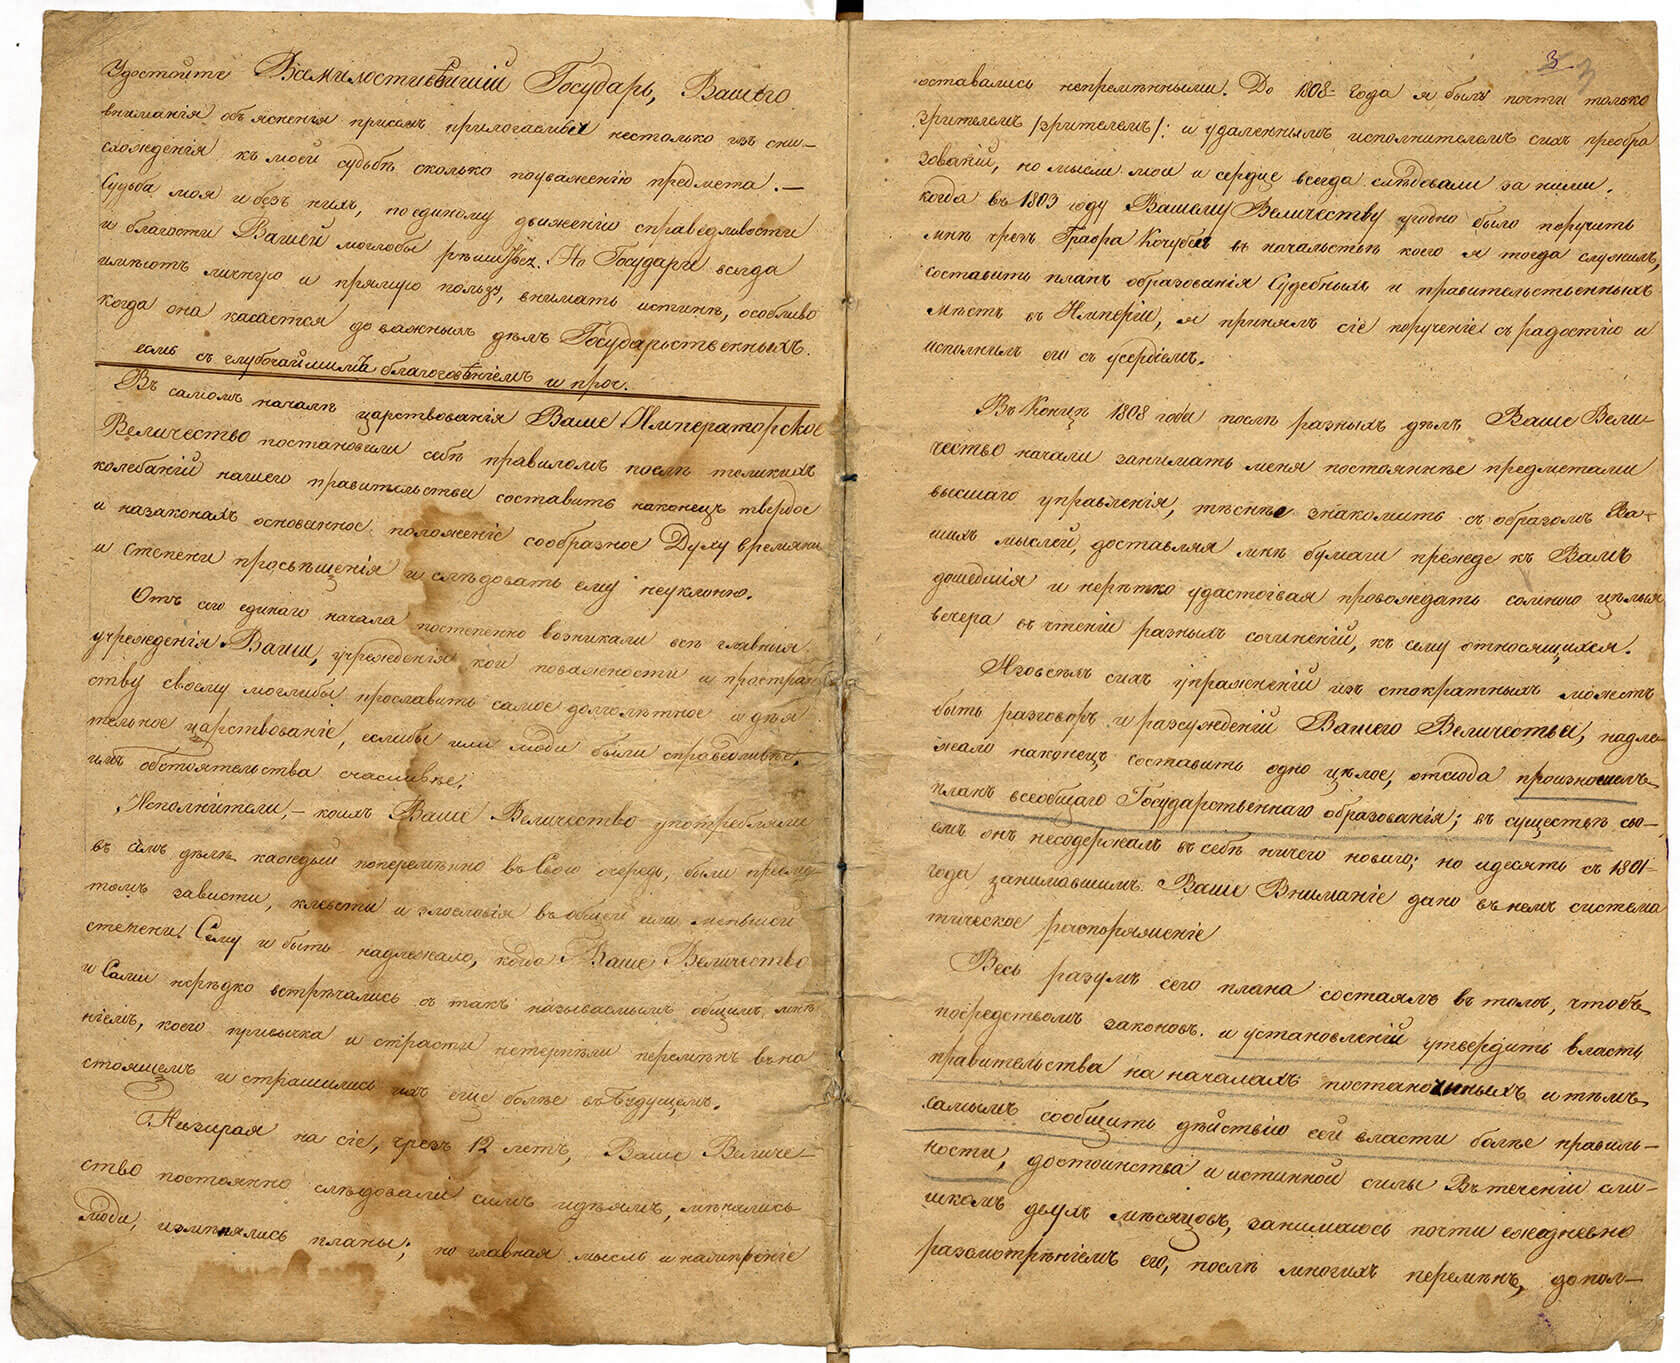 Удостойте Всемилостивѣйшій Государь, Вашего
вниманія объясненія присемъ прилогаемыя нестолько изъ сни-
схожденія къ моей судьбѣ сколько поуваженію предмета. —
Судьба моя и безъ нихъ, поединому движенію справедливости
и благости Вашей моглобы рѣшиться. Но Государи всегда
имѣютъ личную и прямую пользу, внимать истинѣ, особливо
когда она касается до важныхъ дѣлъ Государственныхъ.
есмь съ глубочайшимъ благоговѣніемъ и проч.
Въ самомъ началѣ царствованія Ваше Императорское
Величество постановили себѣ правиломъ послѣ толикихъ
колебаній нашего правительства составить наконецъ твердое
и назаконахъ основанное положеніе сообразное Духу времяни
и степени просвѣщенія и слѣдовать ему неуклонно.
Отъ сего единаго начала постепенно возникали всѣ главныя
учрежденія Ваши, учрежденія кои поважности и простран
ству своему моглибы прославить самое долголѣтное и дѣя
тельное царствованіе, еслибы или люди были справедливѣе,
илъ обстоятельства счасливѣе.
Исполнители, – коихъ Ваше Величество употребляли
въ семъ дѣлѣ каждый поперемѣнно въ свою очередь, были предме
томъ зависти, клеветы и злословія въ общей или меньшой
степени. Сему и быть надлежало, когда Ваше Величество
и Сами нерѣдко встрѣчались съ такъ называемымъ общимъ мнѣ
ніемъ, коего привычка и страсти нетерпѣли перемѣнъ въ на
стоящемъ и страшились ихъ еще болѣе въ Будущемъ.
Невзирая на сіе, чрезъ 12 летъ, Ваше Величе-
ство постоянно слѣдовали симъ идѣямъ, мѣнялись
люди, измѣнялись планы; но главная мысль и намѣреніе
3
оставались непремѣнными. До 1808 года я былъ почти только
зрителемъ /зрителемъ/: и удаленнымъ исполнителемъ сихъ преобра
зованій, но мысли мои и сердце всегда слѣдовали за ними.
когда въ 1803 году Вашему Величеству угодно было поручить
мнѣ чрезъ Графа Кочубея въ начальствѣ коего я тогда служилъ,
составить планъ образованія Судебныхъ и правительственныхъ
мѣстъ въ Имперіи, я принялъ сіе порученіе съ радостію и
исполнилъ его съ усердіемъ.
Въ Концѣ 1808 года послѣ разныхъ дѣлъ Ваше Вели-
чество начали занимать меня постояннѣе предметами
высшаго управленія, тѣснѣе знакомить съ образомъ Ва-
шихъ мыслей, доставляя мнѣ бумаги прежде къ Вамъ
дошедшія и нерѣтко удастоивая провождать сомною цѣлыя
вечера въ чтеніи разныхъ сочиненій, къ сему относящихся.
Изовсѣхъ сихъ упражненій изъ стократныхъ можетъ
быть разговоръ и разсужденій Вашего Величества, надле-
жало наконецъ составить одно цѣлое, отсюда произошелъ
планъ всеобщаго Государственнаго образованія; въ существѣ сво-
емъ онъ несодержалъ въ себѣ ничего новаго; но идеямъ съ 1801-
года занимавшимъ Ваше Вниманіе дано въ немъ система
тическое распоряженіе
Весь разумъ сего плана состоялъ въ томъ, чтобъ
посредствомъ законовъ и установленій утвердить власть
правительства на началахъ постоянныхъ и тѣмъ
самымъ сообщить дѣйствію сей власти болѣе правиль-
ности, достоинства и истинной силы Въ теченіи сли-
шкомъ двухъ мѣсяцовъ, занимаюсь почти ежедневно
разсмотрѣніемъ его, послѣ многихъ перемѣнъ, допол-